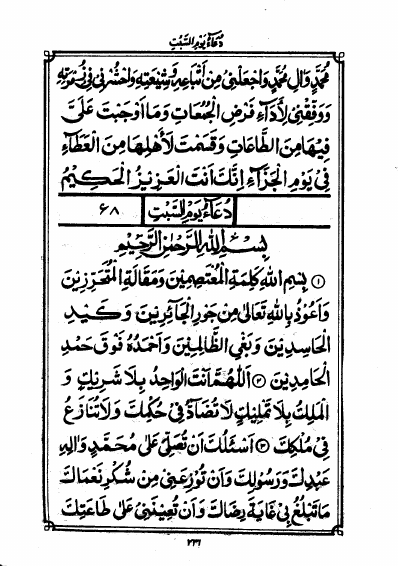 دُعَآءُ يَوْمِ السَّبْتِ
مُحَمَّدٍ وَّاٰلِ مُحَمَّدٍ وَاجْعَلْنِيْ مِنْ اَتْبَاعِهٖ وَشِيْعَتِهٖ وَاحْشُرْنِيْ فِيْ زُمْرَتِهٖ
وَوَفِّقْنِيْ لِاَدَآءِ فَرْضِ الْجُمُعَاتِ وَمَا اَوْجَبْتَ عَلَيَّ
فِيْهَا مِنَ الطَّاعَاتِ وَقَسَمْتَ لِاَهْلِهَا مِنَ الْعَطَآءِ
فِيْ يَوْمِ الْجَزَآءِ اِنَّكَ اَنْتَ الْعَزِيْزُ الْحَكِيْمُ
دُعَآءُ يَوْمِ السَّبْتِ ۶۸
بِسْمِ اللهِ الرَّحْمٰنِ الرَّحِيْمِ
① بِسْمِ اللهِ كَلِمَةِ الْمُعْتَصِمِيْنَ وَمَقَالَةِ الْمُتَحَرِّزِيْنَ
وَاَعُوْذُ بِاللهِ تَعَالٰى مِنْ جَوْرِ الْجَآئِرِيْنَ وَ كَيْدِ
الْحَاسِدِيْنَ وَبَغْيِ الظَّالِمِيْنَ وَاَحْمَدُهٗ فَوْقَ حَمْدِ
الْحَامِدِيْنَ ② اَللّٰهُمَّ اَنْتَ الْوَاحِدُ بِلَا شَرِيْكٍ وَ
الْمَلِكُ بِلَا تَمْلِيْكٍ لَا تُضَآدُّ فِيْ حُكْمِكَ وَلَا تُنَازَعُ
فِيْ مُلْكِكَ ③ اَسْئَلُكَ اَنْ تُصَلِّيَ عَلٰى مُحَمَّدٍ وَاٰلِهٖ
عَبْدِكَ وَرَسُوْلِكَ وَاَنْ تُوْزِعَنِيْ مِنْ شُكْرِ نَعْمَائِكَ
مَا تَبْلُغُ بِيْ غَايَةَ رِضَاكَ وَاَنْ تُعِيْنَنِيْ عَلٰى طَاعَتِكَ
۲۳۱